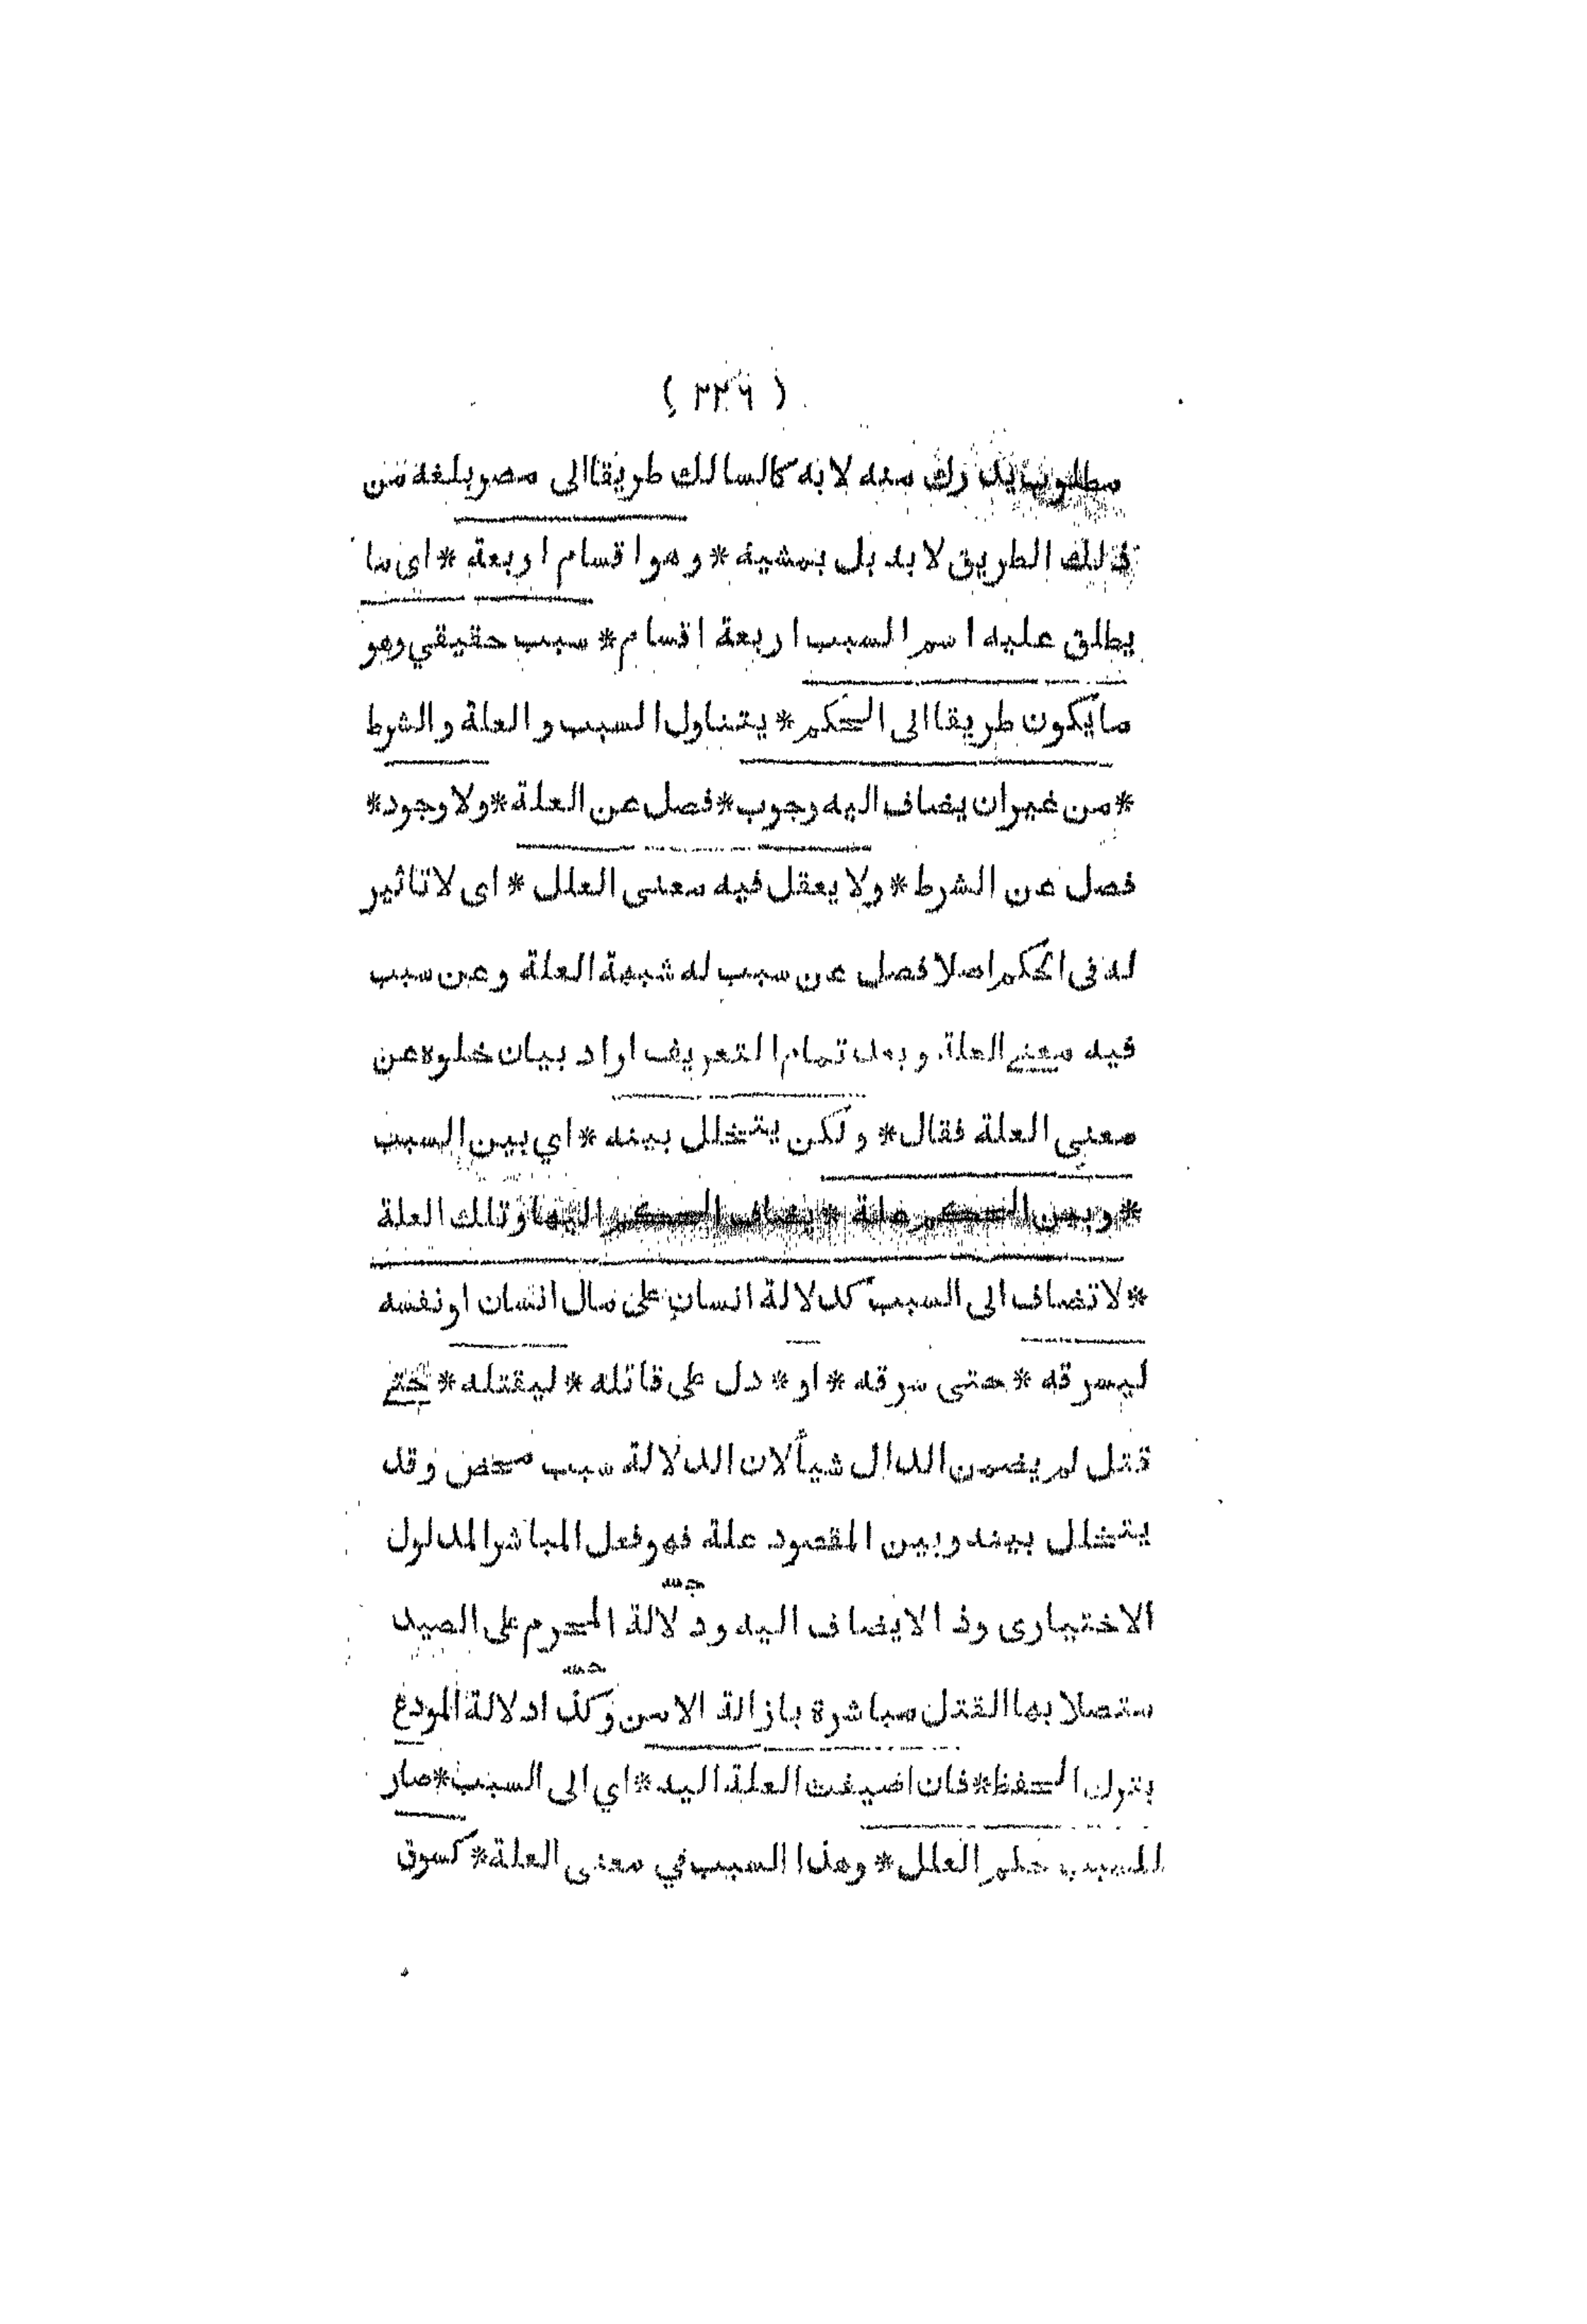 ( ٣٢٦ )
مطلوب يدرك منه لا به كالسالك طريقا الى مصر بلغه من
ذلك الطريق لا به بل بمشيه * وهو اقسام اربعة * اى ما
يطلق عليه اسم السبب اربعة اقسام * سبب حقيقي وهو
ما يكون طريقا الى الحكم * يتناول السبب و العلة و الشرط
* من غير ان يضاف اليه وجوب * فصل عن العلة * ولا وجود *
فصل عن الشرط * ولا يعقل فيه معنى العلل * اى لا تاثير
له فى الحكم اصلا فصل عن سبب له شبهة العلة وعن سبب
فيه معنى العلة و بعد تمام التعريف اراد بيان خلوه عن
معنى العلة فقال * ولكن يتخلل بينه * اي بين السبب
* وبين الحكم علة * يضاف الحكم اليها وتلك العلة
* لا تضاف الى السبب كدلالة انسان على مال انسان او نفسه
ليسرقه * حتى سرقه * او * دل على قاتله * ليقتله * حتى
قتل لم يضمن الدال شيأ لان الدلالة سبب محض وقد
يتخلل بينه وبين المقصود علة فهو فعل المباشر المدلول
الاختيارى وذا لا يضاف اليه ودلالة المحرم على الصيد
متصلا بها القتل مباشرة بازالة الامن وكذا دلالة المودع
بترك الحفظ * فان اضيفت العلة اليه * اي الى السبب * صار
للسبب حكم العلل * وهذا السبب في معنى العلة * كسوق